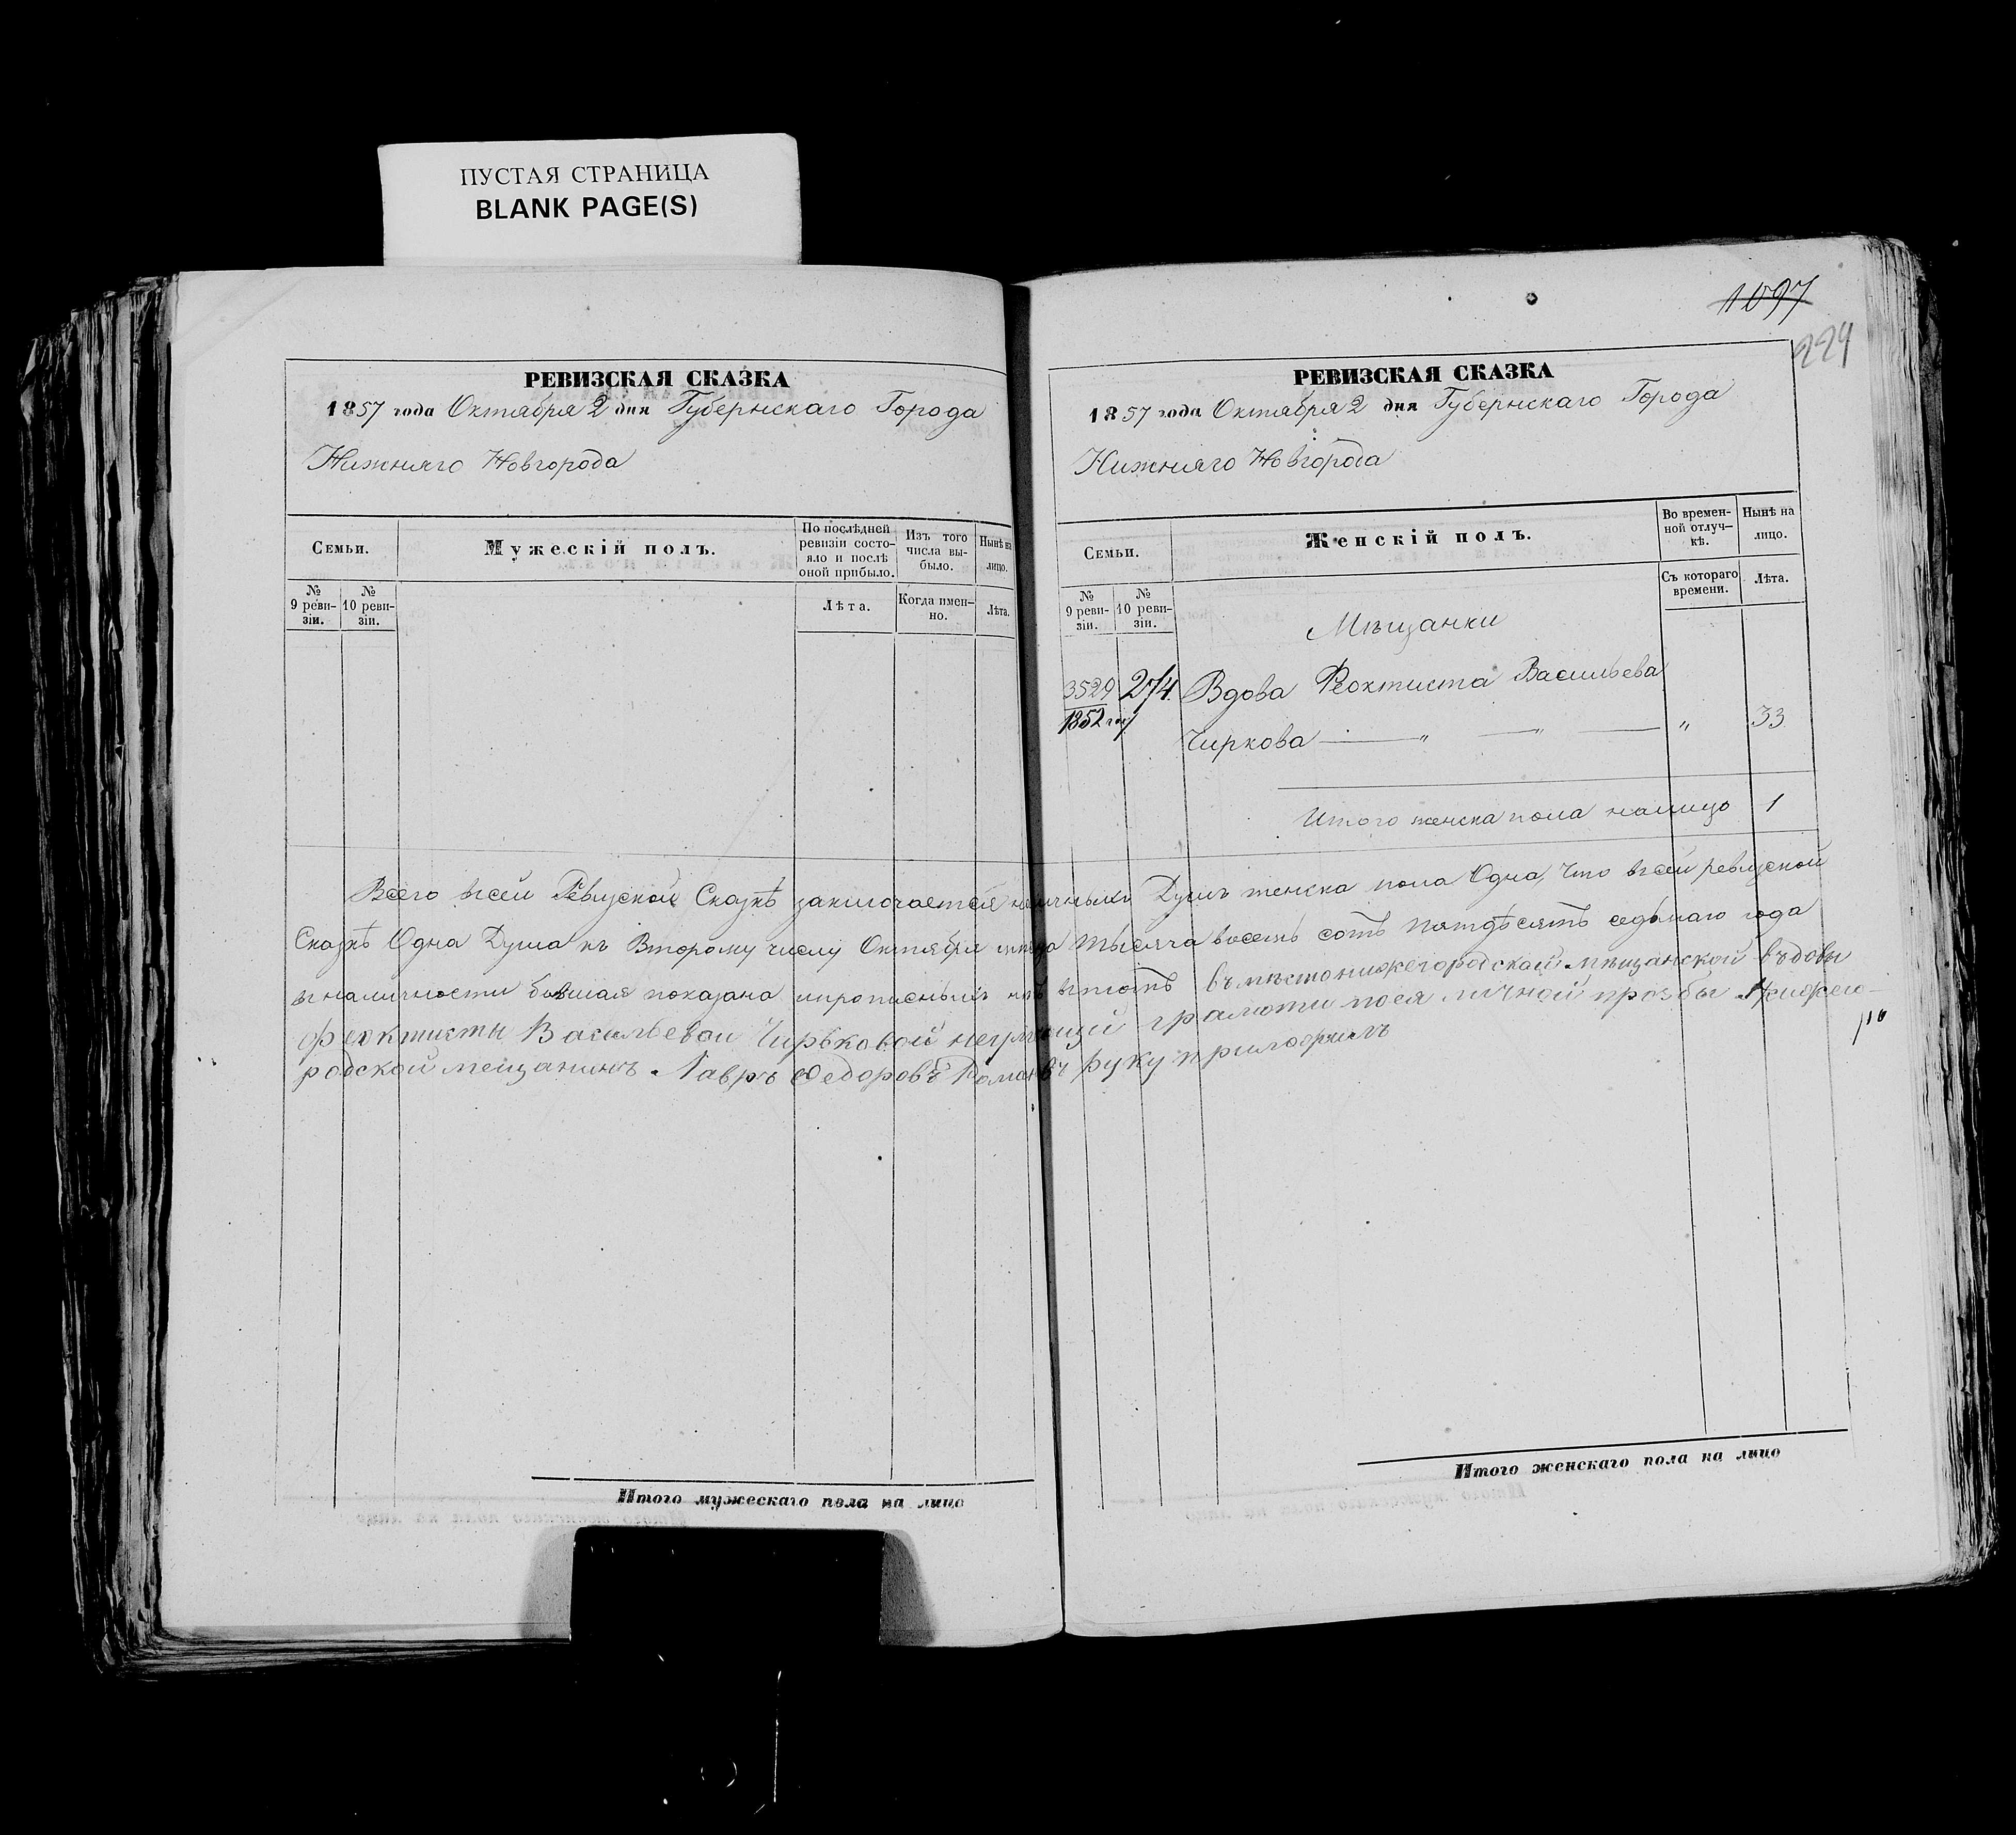 ПУСТАЯ СТРАНИЦА
BLANK PAGE(S)
РЕВИЗСКАЯ СКАЗКА
1857 года Октября 2 дня Губернскаго Города
Нижняго Новгорода
Семьи.
Мужескій полъ.
По послѣдней
ревизіи состо-
яло и послѣ
оной прибыло.
Изъ того
числа вы-
было.
Нынѣ на
лицо.
№
9 реви-
зіи.
№
10 реви-
зіи.
Лѣта.
Когда имен-
но.
Лѣта.
1097
224
РЕВИЗСКАЯ СКАЗКА
1857 года Октября 2 дня Губернскаго Города
Нижняго Новгорода
Семьи.
Женскій полъ.
Во времен-
ной отлуч-
кѣ.
Нынѣ на
лицо.
№
9 реви-
зіи.
№
10 реви-
зіи.
Съ котораго
времени.
Лѣта.
Мѣщанки
3529 274 Вдова Феоктиста Васильева
1852
Чиркова — „ — „ — „ 33
Итого женска пола налицо 1
Всего всей Ревизской Сказкѣ заключается наличныхъ Душъ женска пола Одна, Что всей ревизской
Сказкѣ Одна Душа къ Второму числу Октября тысяча восемь сотъ пятдѣсятъ седьмаго года
вналичности бывшая показана въмѣсто нижегородской мѣщанской въдовы
феоктисты Васильевой Чирьковой неумеющий грамоти поея личной прозбы Нижего-
родской мещанинъ Лавръ Федоровъ руку приложилъ
Итого мужескаго пола на лицо
Итого женскаго пола на лицо